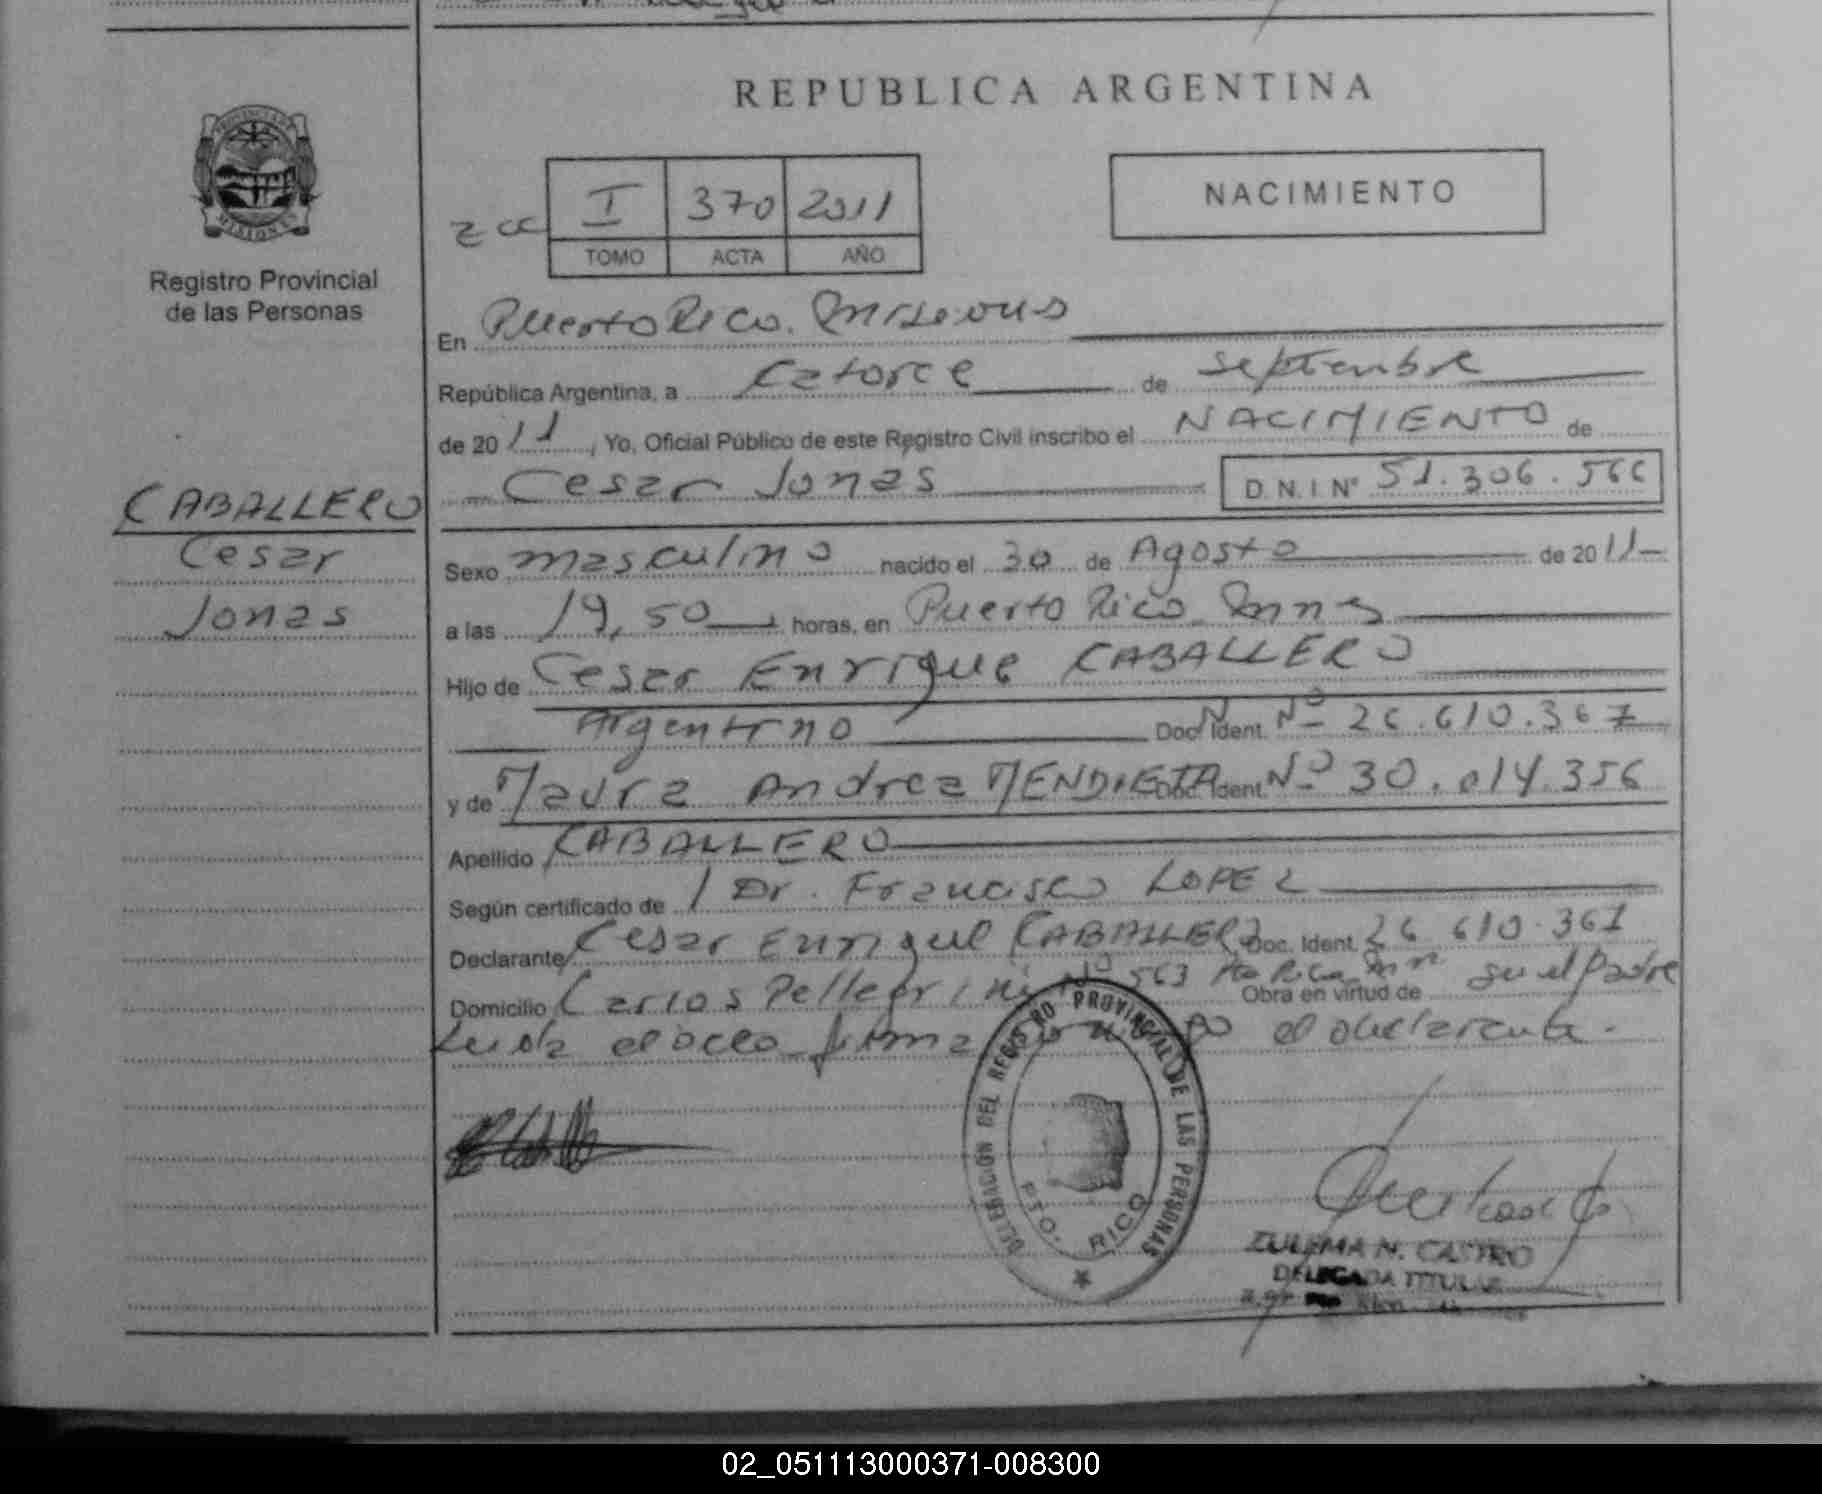 REPUBLICA ARGENTINA
PROVINCIA DE
MISIONES
Registro Provincial
de las Personas
NACIMIENTO
I 370 2011
TOMO ACTA AÑO
En Puerto Rico. Misiones
República Argentina, a Catorce de septiembre
de 2011, Yo, Oficial Público de este Registro Civil inscribo el NACIMIENTO de
Cesar Jonas D.N.I Nº 51.306.566
CABALLERO
Cesar
Jonas
Sexo masculino nacido el 30 de Agosto de 2011
a las 19,50 horas, en Puerto Rico Mnes
Hijo de Cesar Enrique CABALLERO
Argentino Doc. Ident. Nº 26.610.367
y de Maura Andrea MENDIETA Doc. Ident. Nº 30.014.356
Apellido CABALLERO
Según certificado de Dr. Francisco LOPEZ
Declarante Cesar Enrique CABALLERO Doc. Ident. 26 610.367
Domicilio Carlos Pellegrini Nº 563 Pto Rico Obra en virtud de su el Padre
Leida el acta firma el declarante.
DELEGACION DEL REGISTRO PROVINCIAL DE LAS PERSONAS
PTO. RICO
ZULEMA N. CASTRO
DELEGADA TITULAR
02_051113000371-008300